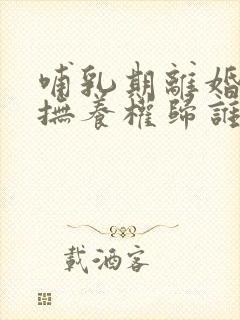 哺乳期離婚
撫養權歸誰
載酒客